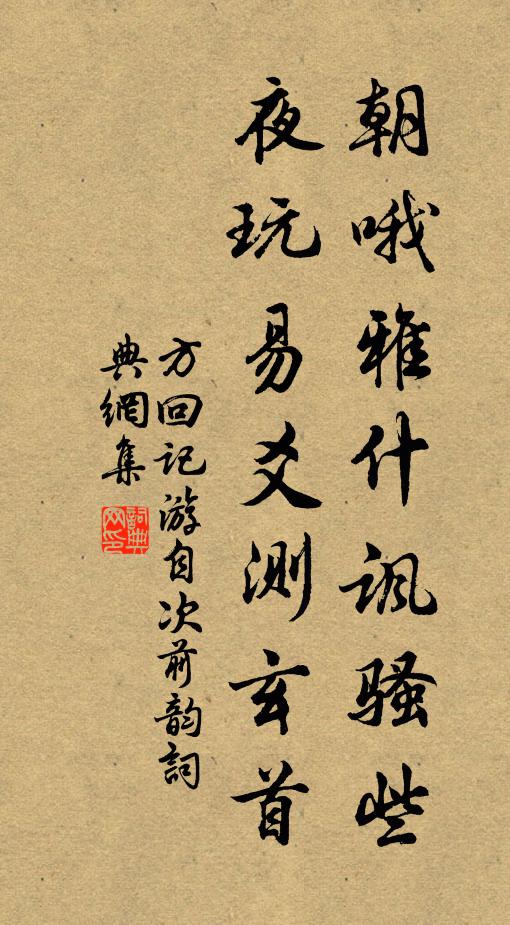 朝哦雅什讽骚些
夜玩易爻测玄首
方回记游自次前韵词
典網集
詞典網印